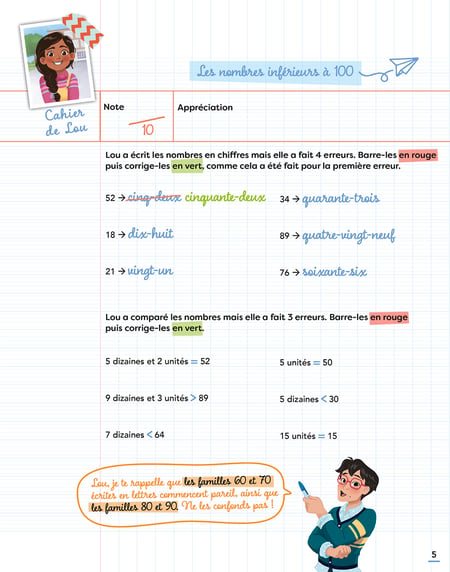 Les nombres inférieurs à 100
Cahier
de Lou
Note
Appréciation
10
Lou a écrit les nombres en chiffres mais elle a fait 4 erreurs. Barre-les en rouge
puis corrige-les en vert, comme cela a été fait pour la première erreur.
52 → cinq-deux cinquante-deux
34 → quarante-trois
18 → dix-huit
89 → quatre-vingt-neuf
21 → vingt-un
76 → soixante-six
Lou a comparé les nombres mais elle a fait 3 erreurs. Barre-les en rouge
puis corrige-les en vert.
5 dizaines et 2 unités = 52
5 unités = 50
9 dizaines et 3 unités > 89
5 dizaines < 30
7 dizaines < 64
15 unités = 15
Lou, je te rappelle que les familles 60 et 70
écrites en lettres commencent pareil, ainsi que
les familles 80 et 90. Ne les confonds pas !
5